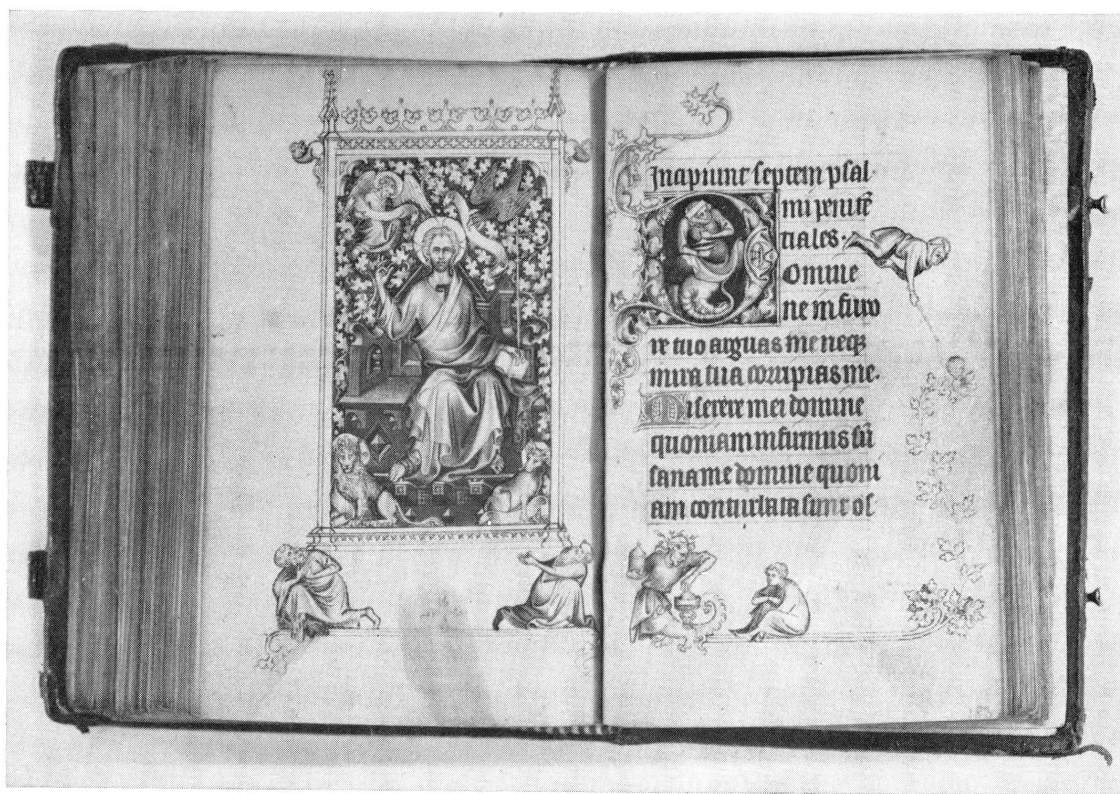 Incipiunt septem psal
mi penitē
tiales.
Domine
ne in furo
re tuo arguas me neq3
in ira tua corripias me.
Miserere mei domine
quoniam infirmus sū
sana me domine quoni
am conturbata sunt os